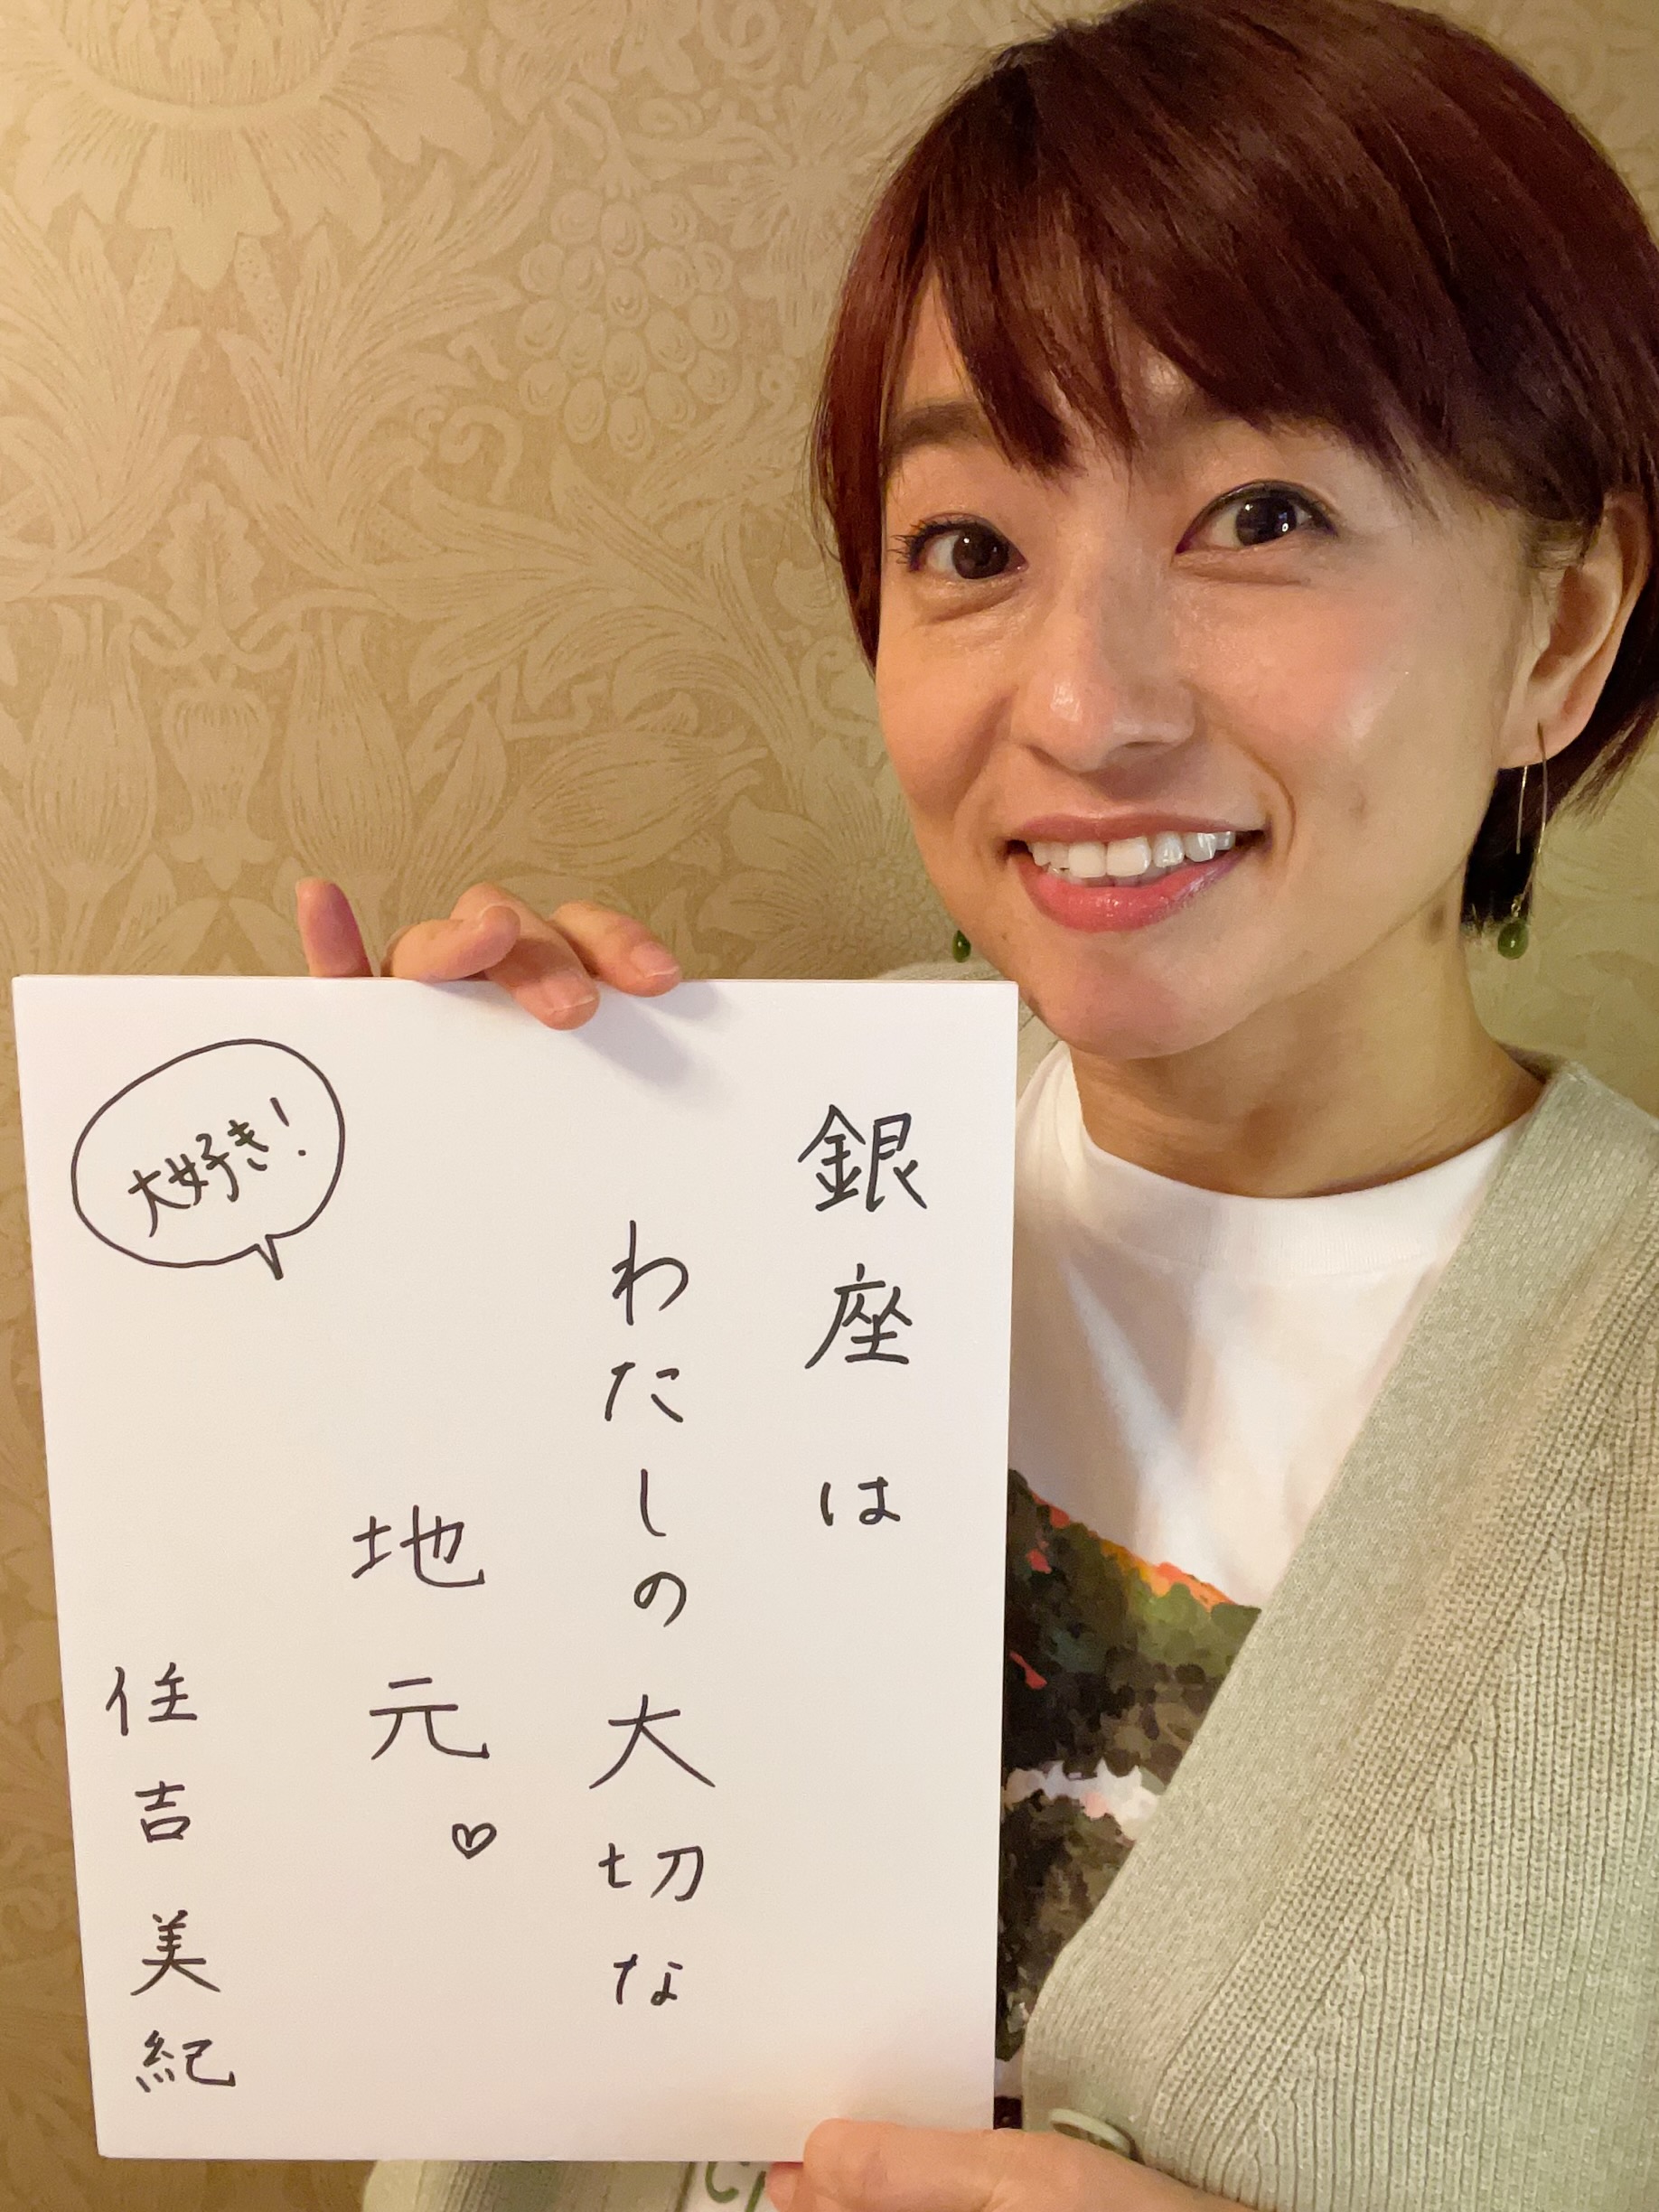 銀座は
わたしの大切な
地元♡
大好き!
住吉美紀